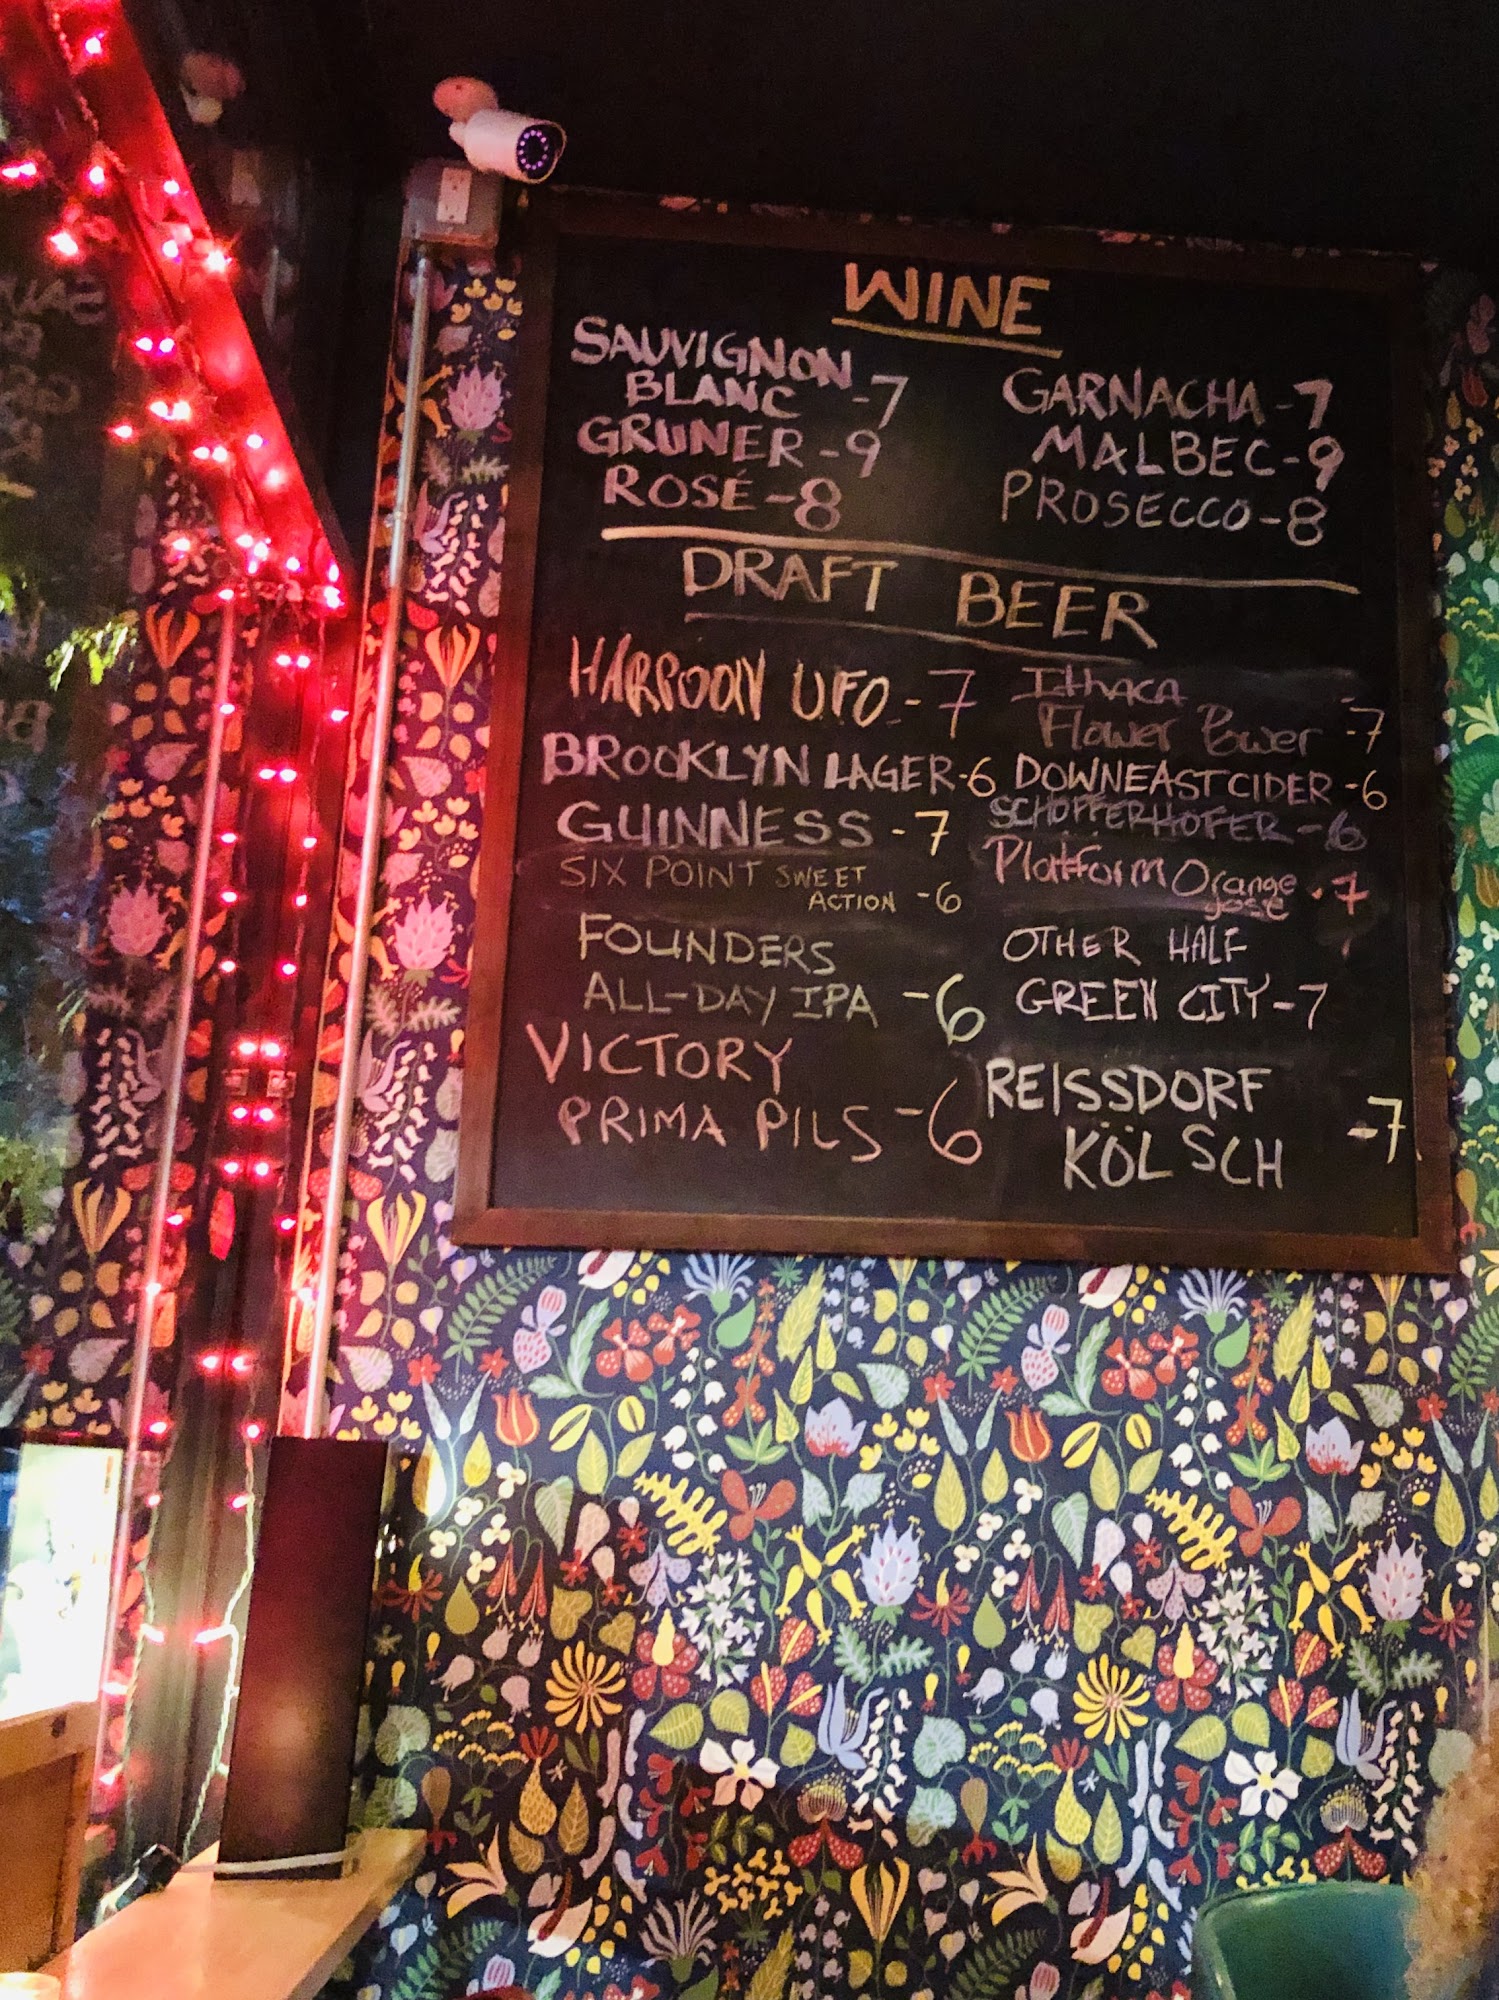 WINE
SAUVIGNON
BLANC -7
GRUNER -9
ROSÉ -8
GARNACHA -7
MALBEC -9
PROSECCO -8
DRAFT BEER
HARPOON UFO -7
BROOKLYN LAGER -6
GUINNESS -7
SIX POINT SWEET
ACTION -6
FOUNDERS
ALL-DAY IPA -6
VICTORY
PRIMA PILS -6
Ithaca
Flower Power -7
DOWNEAST CIDER -6
SCHÖFFERHOFER -6
Platform Orange -7
gose
OTHER HALF
GREEN CITY -7
REISSDORF
KÖLSCH -7